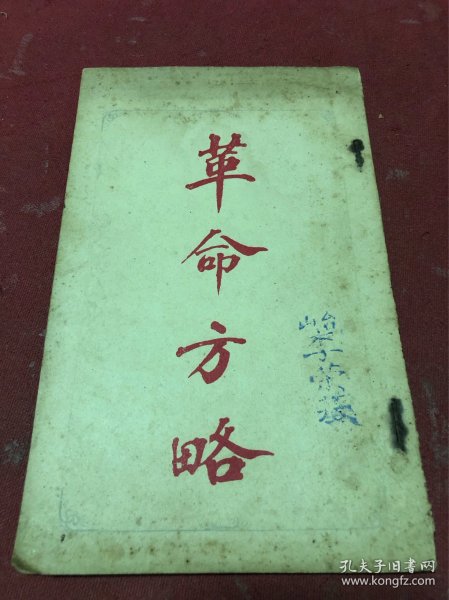 革命方略
孔夫子旧书网
www.kongfz.com